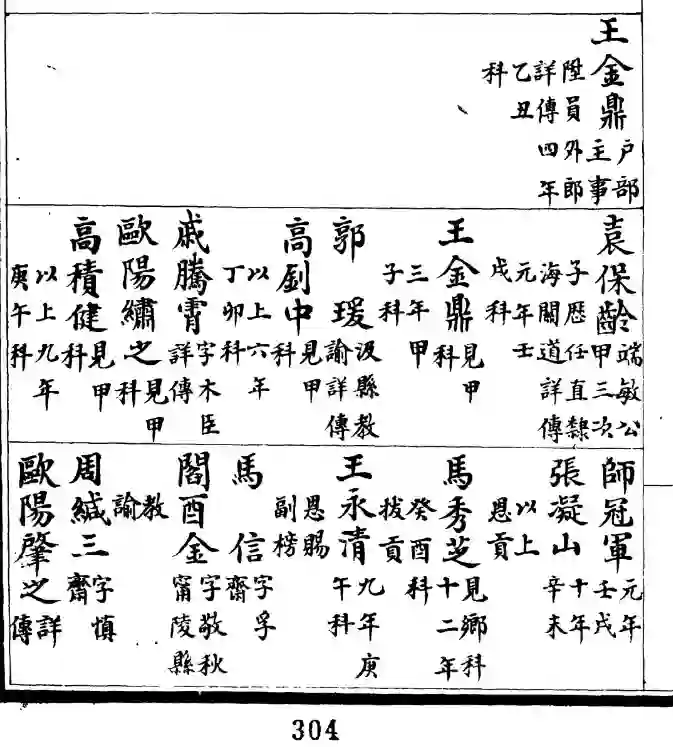 王金鼎戶部主事陞員外郎詳傳四年乙丑科
袁保齡端敏公甲三次子歷任直隸海關道詳傳元年壬戌科
王金鼎見甲科三年甲子科
郭瑗汲縣教諭詳傳
高釗中見甲科以上六年丁卯科
戚騰霄字木臣詳傳
歐陽繡之見甲科
高積健見甲科以上九年庚午科
師冠軍元年壬戌
張凝山十年辛未以上恩貢
馬秀芝見鄉科十二年癸酉科拔貢
王永清九年庚午科恩賜副榜
馬信字孚齋
閻酉金字敬秋甯陵縣教諭
周緘三字慎齋
歐陽肇之詳傳
304